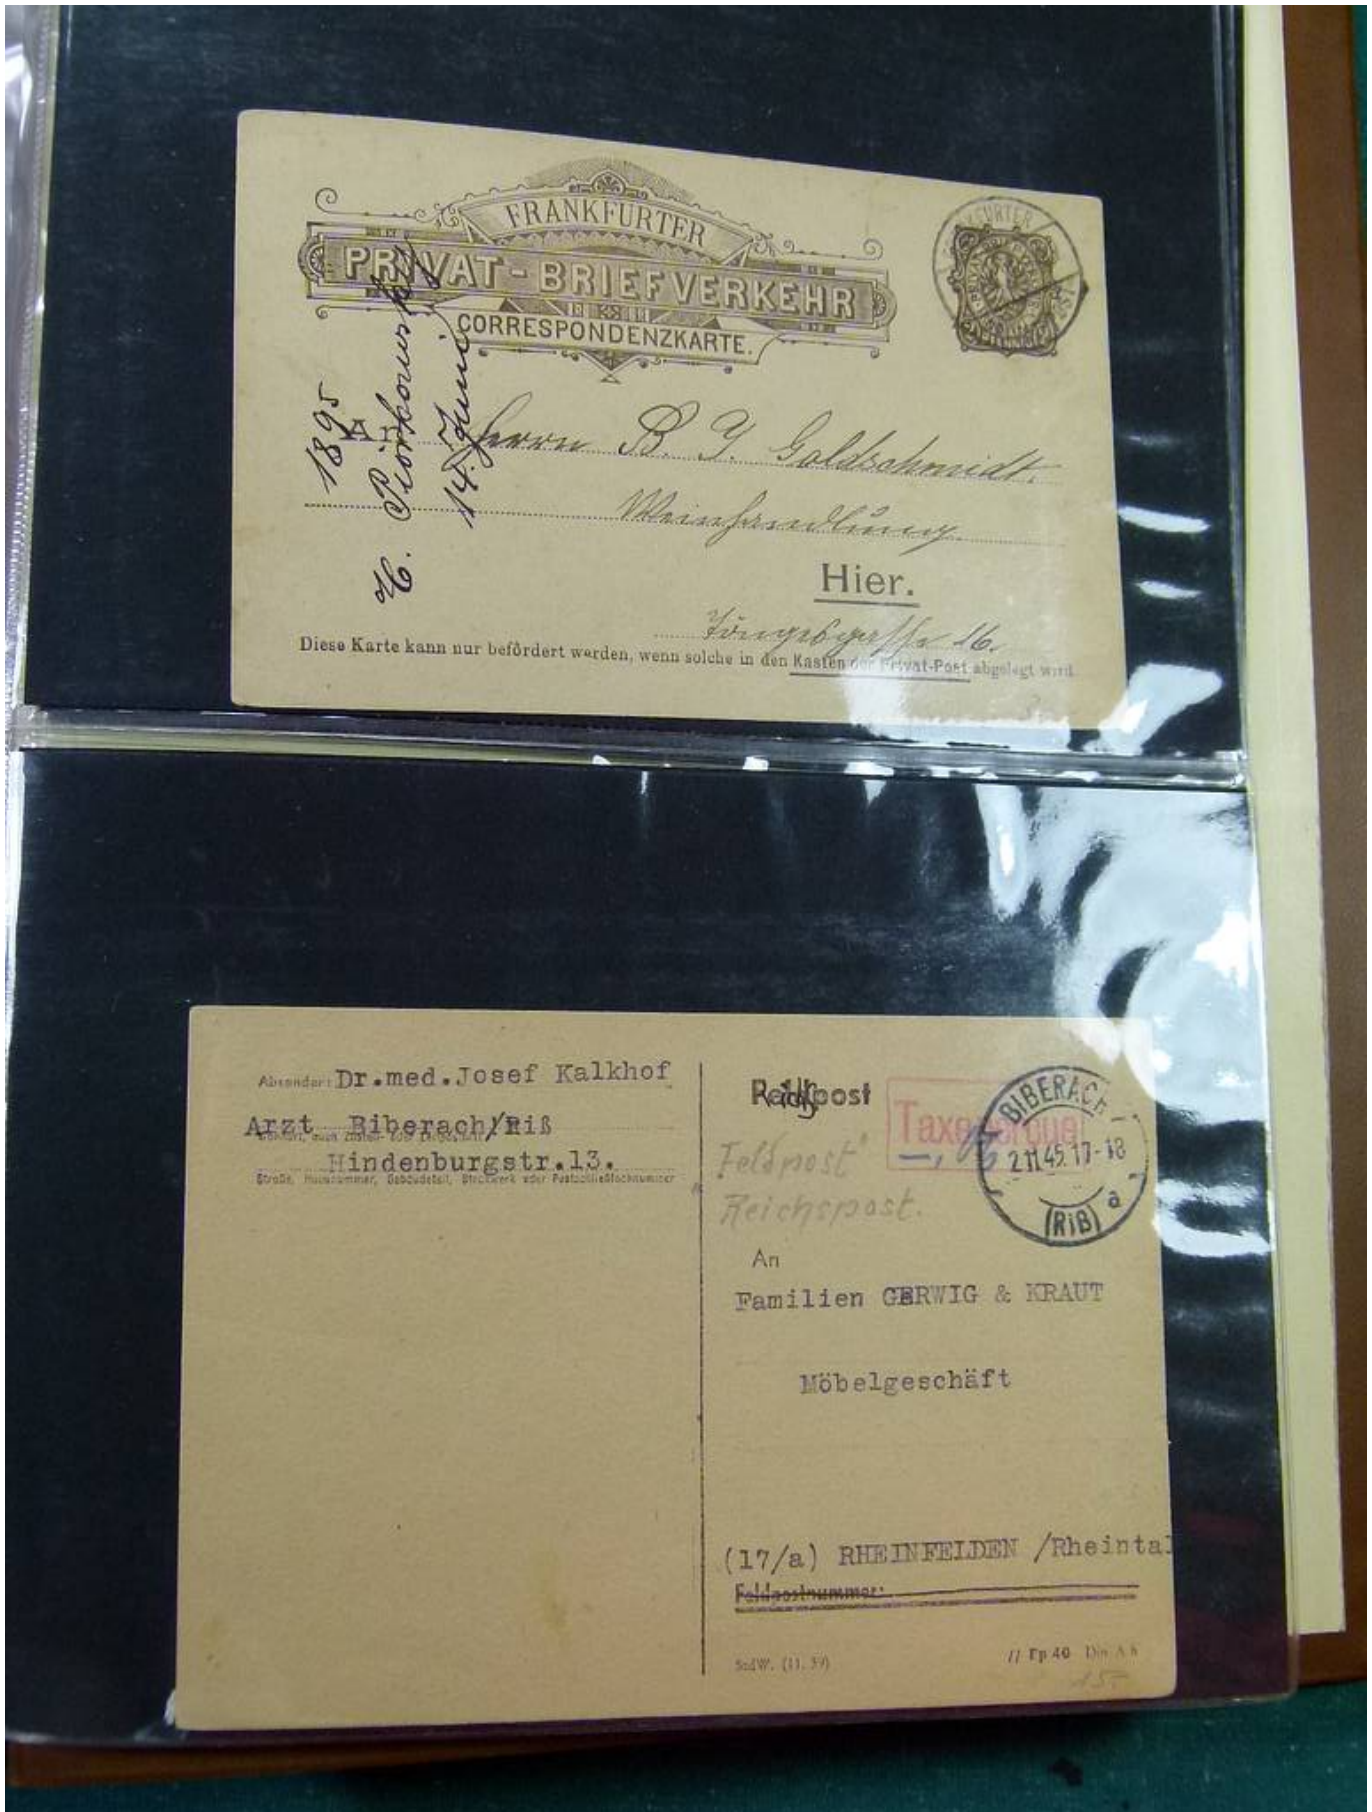 FRANKFURTER
PRIVAT-BRIEFVERKEHR
CORRESPONDENZKARTE.
FRANKFURTER
1895
H. Piorkowsky
14. Juni
An Herrn B. J. Goldschmidt.
Weinhandlung.
Hier.
Töngesgasse 16.
Diese Karte kann nur befördert werden, wenn solche in den Kasten der Privat-Post abgelegt wird.
Absender: Dr.med.Josef Kalkhof
Arzt Biberach/Riß
Hindenburgstr.13.
Straße, Hausnummer, Gebäudeteil, Stockwerk oder Postschließfachnummer
Feldpost
Taxe perçue
BIBERACH
2.11.45.17-18
(RIß) a
Feldpost
Reichspost.
An
Familien GERWIG & KRAUT
Möbelgeschäft
(17/a) RHEINFELDEN /Rheintal
Feldpostnummer:
StdW. (11. 39)
// Fp 40 Din A 6
15-